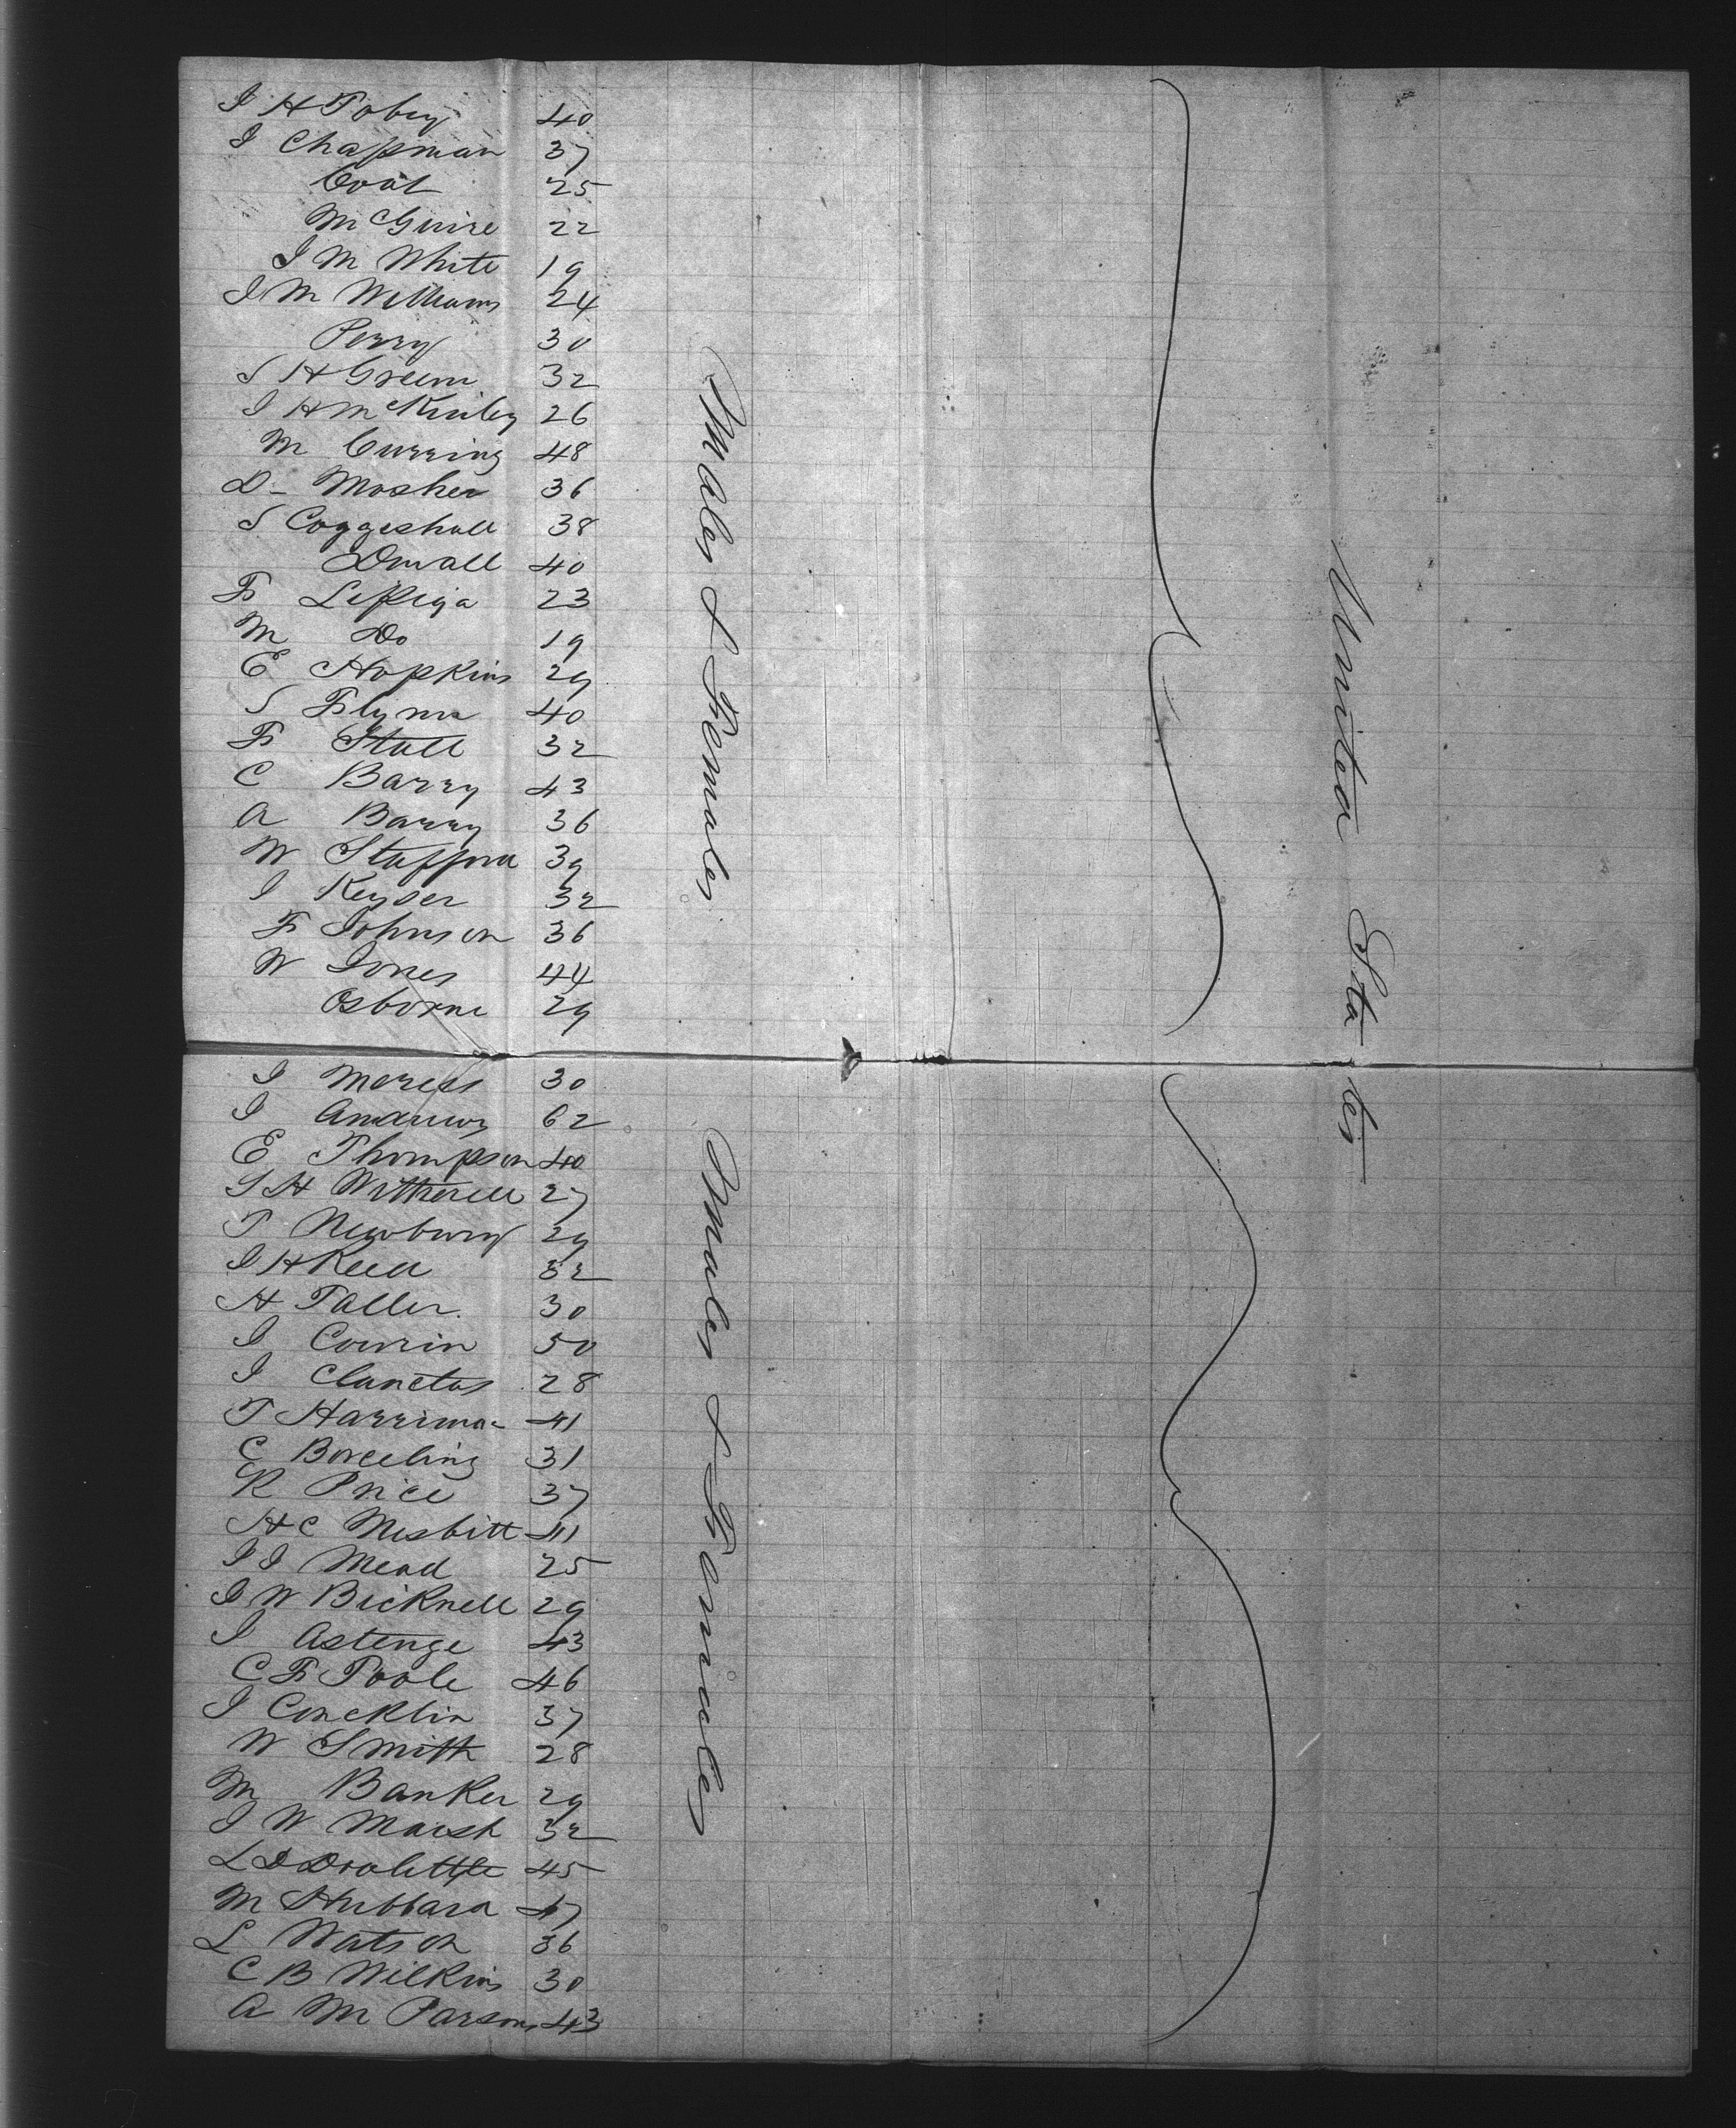 J H Tobey 40
J Chapman 37
25
McGuire 22
J M White 19
J M Williams 24
Perry 30
S H Green 32
J H McKinley 26
M 48
D - Mosher 36
S Coggeshall 38
Duvall 40
F 23
M Do 19
E Hopkins 29
S Flynn 40
F Stall 32
C Barry 43
A Barry 36
W Stafford 39
J Keyser 32
F Johnson 36
W Jones 44
Osborne 29
J 30
J Andrews 62
E Thompson 40
S H Witherell 27
T Newbury 29
J H Reed 32
H Taller 30
J 50
J 28
T Harriman 41
C 31
R Price 37
H C Nesbitt 41
J J Mead 25
J W Bicknell 29
J Astenge 43
C F Poole 46
J Concklin 37
W Smith 28
M Banker 29
J W Marsh 32
L D 45
M Hubbard 47
L Watson 36
C B Wilkins 30
A M Parsons 43
Males & Females
Males & Females
United States